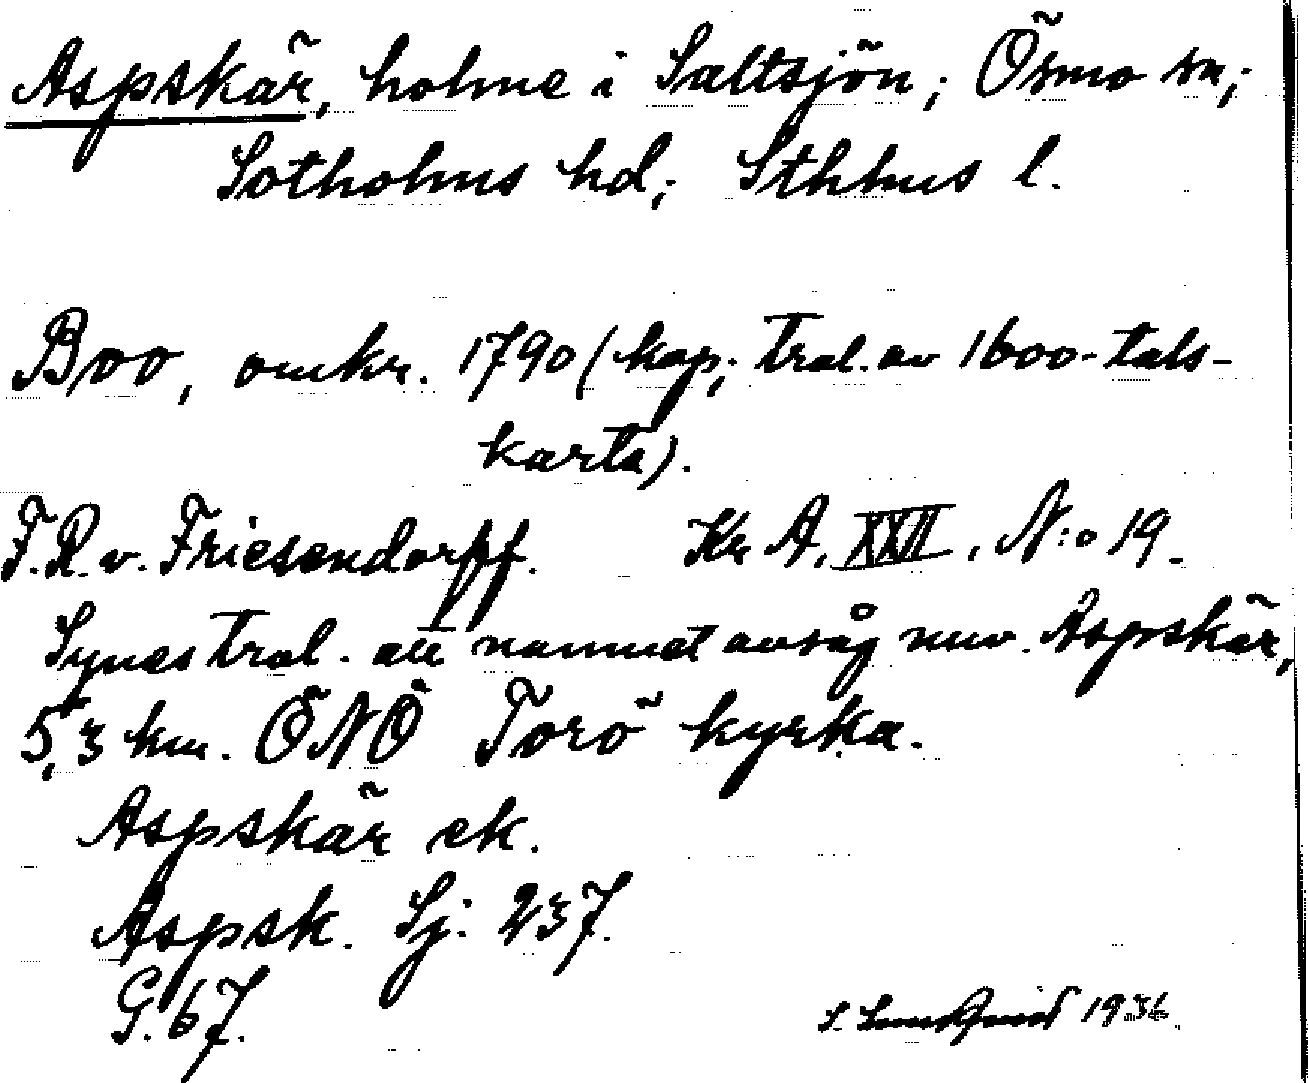 Aspskär, holme i Saltsjön; Ösmo sn;
Sotholms hd; Sthlms l.
Boo, omkr. 1790 (kop; trol. av 1600-tals-
karta).
F.R. v. Friesendorff. Kr A, XXII, N:o 19.
Synes trol. att namnet avsåg nuv. Aspskär,
5,3 km. ÖNÖ Torö kyrka.
Aspskär ek.
Aspsk. Sj: 237.
G. 67.
S. 1936